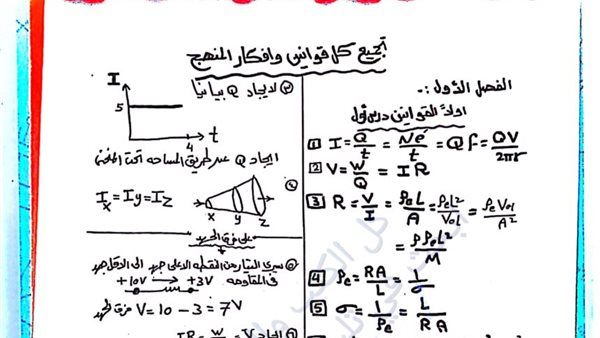 تجميع كل قوانين وافكار المنهج
الفصل الأول :-
اولاً القوانين درس أول
1 I = Q/t = Ne/t = Q f = QV/2πr
2 V = W/Q = I R
3 R = V/I = ρe L/A = ρe L²/Vol = ρe Vol/A²
= ρ ρe L²/M
4 ρe = RA/L = 1/σ
5 σ = 1/ρe = L/RA
لايجاد Q بيانيا
I
5
4
t
ايجاد Q عن طريق المساحه تحت المنحنى
Ix = Iy = Iz
x y z
على فرق الجهد
يسرى التيار من النقطه الاعلى جهد الى الاقل جهد
فى المقاومه
+10V +3V
فرق الجهد V = 10 - 3 = 7V